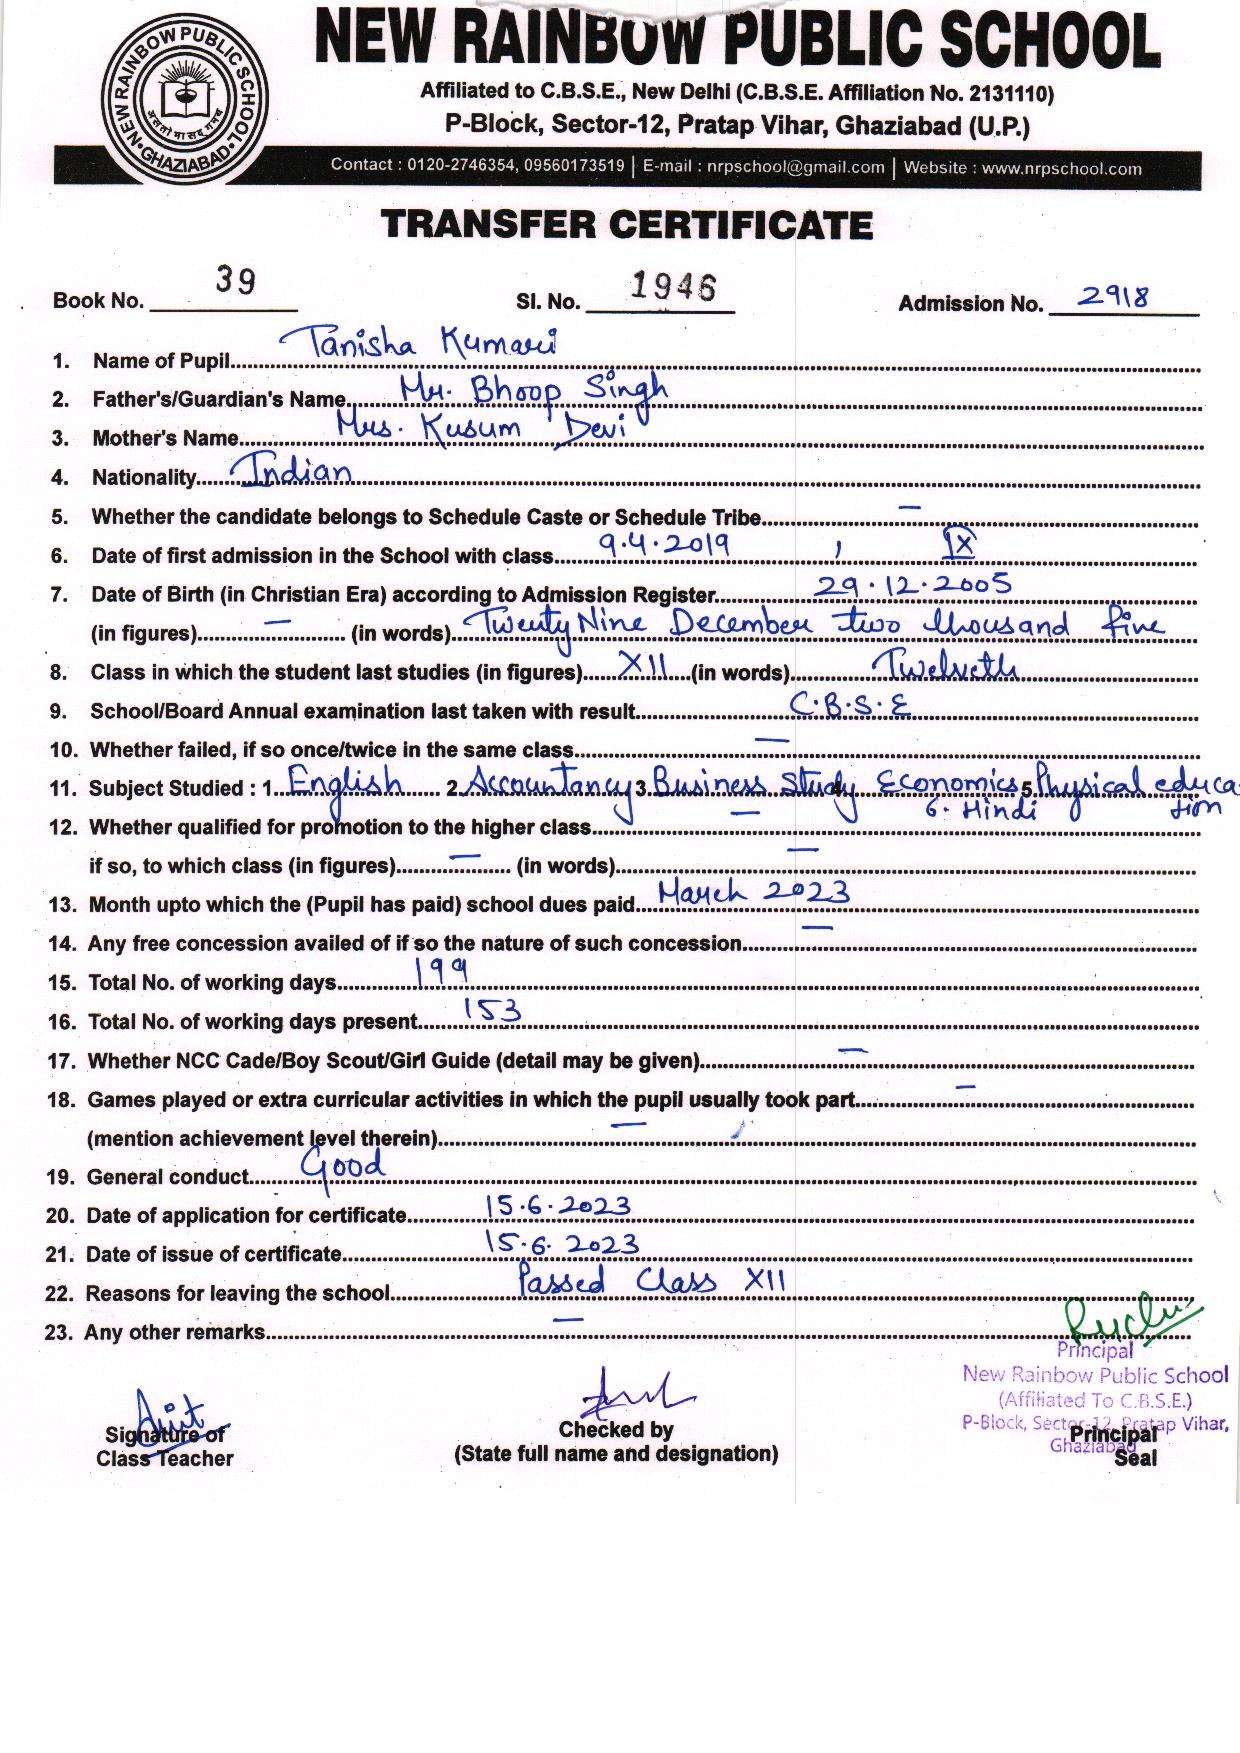 NEW RAINBOW PUBLIC SCHOOL
Affiliated to C.B.S.E., New Delhi (C.B.S.E. Affiliation No. 2131110)
P-Block, Sector-12, Pratap Vihar, Ghaziabad (U.P.)
NEW RAINBOW PUBLIC SCHOOL GHAZIABAD
असतो मा सद् गमय
Contact : 0120-2746354, 09560173519 | E-mail : nrpschool@gmail.com | Website : www.nrpschool.com
TRANSFER CERTIFICATE
Book No. 39 Sl. No. 1946 Admission No. 2918
1. Name of Pupil Tanisha Kumari
2. Father's/Guardian's Name Mr. Bhoop Singh
3. Mother's Name Mrs. Kusum Devi
4. Nationality Indian
5. Whether the candidate belongs to Schedule Caste or Schedule Tribe —
6. Date of first admission in the School with class 9.4.2019 , IX
7. Date of Birth (in Christian Era) according to Admission Register 29.12.2005
(in figures) — (in words) Twenty Nine December two thousand five
8. Class in which the student last studies (in figures) XII (in words) Twelveth
9. School/Board Annual examination last taken with result C.B.S.E
10. Whether failed, if so once/twice in the same class —
11. Subject Studied : 1. English 2. Accountancy 3. Business Study 4. Economics 5. Physical education
6. Hindi
12. Whether qualified for promotion to the higher class —
if so, to which class (in figures) — (in words) —
13. Month upto which the (Pupil has paid) school dues paid March 2023
14. Any free concession availed of if so the nature of such concession —
15. Total No. of working days 199
16. Total No. of working days present 153
17. Whether NCC Cade/Boy Scout/Girl Guide (detail may be given) —
18. Games played or extra curricular activities in which the pupil usually took part —
(mention achievement level therein) —
19. General conduct Good
20. Date of application for certificate 15.6.2023
21. Date of issue of certificate 15.6.2023
22. Reasons for leaving the school Passed Class XII
23. Any other remarks —
Principal
New Rainbow Public School
(Affiliated To C.B.S.E.)
P-Block, Sector-12, Pratap Vihar,
Ghaziabad
Signature of
Class Teacher
Checked by
(State full name and designation)
Principal
Seal